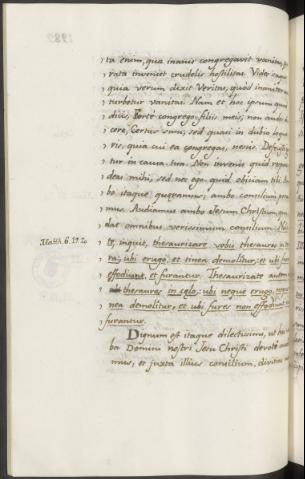 ta enim, qua inanis congregavit vanitas,
rata invenit crudelis hostilitas. Vide ergo
quia verum dixit Veritas, quod inaniter
turbetur vanitas. Nam et hoc ipsum quod
dicis, Forte congrego filiis meis, non audes
cere, Certus sum, sed quasi in dubio loque
ris, quia cui ea congregas, nescis.
tur in causa tua. Non invenis quid
deas mihi, sed nec ego quid
bo itaque quæramus; ambo consilium
mus. Audiamus ambo verum Christum,
dat omnibus verissimum consilium. Noli
Matth. 6. 19. 20.
te, inquit, thesaurizare vobis thesauros in ter
ra; ubi erugo, et tinea demolitur; et ubi fures
effodiunt, et furantur. Thesaurizate autem
thesauros in celo; ubi neque erugo, neque
nea demolitur; et ubi fures non effodiunt
furantur.
Dignum est itaque dilectissimi, ut
ba Domini nostri Jesu Christi devote
mus, et juxta illius consilium, divitias